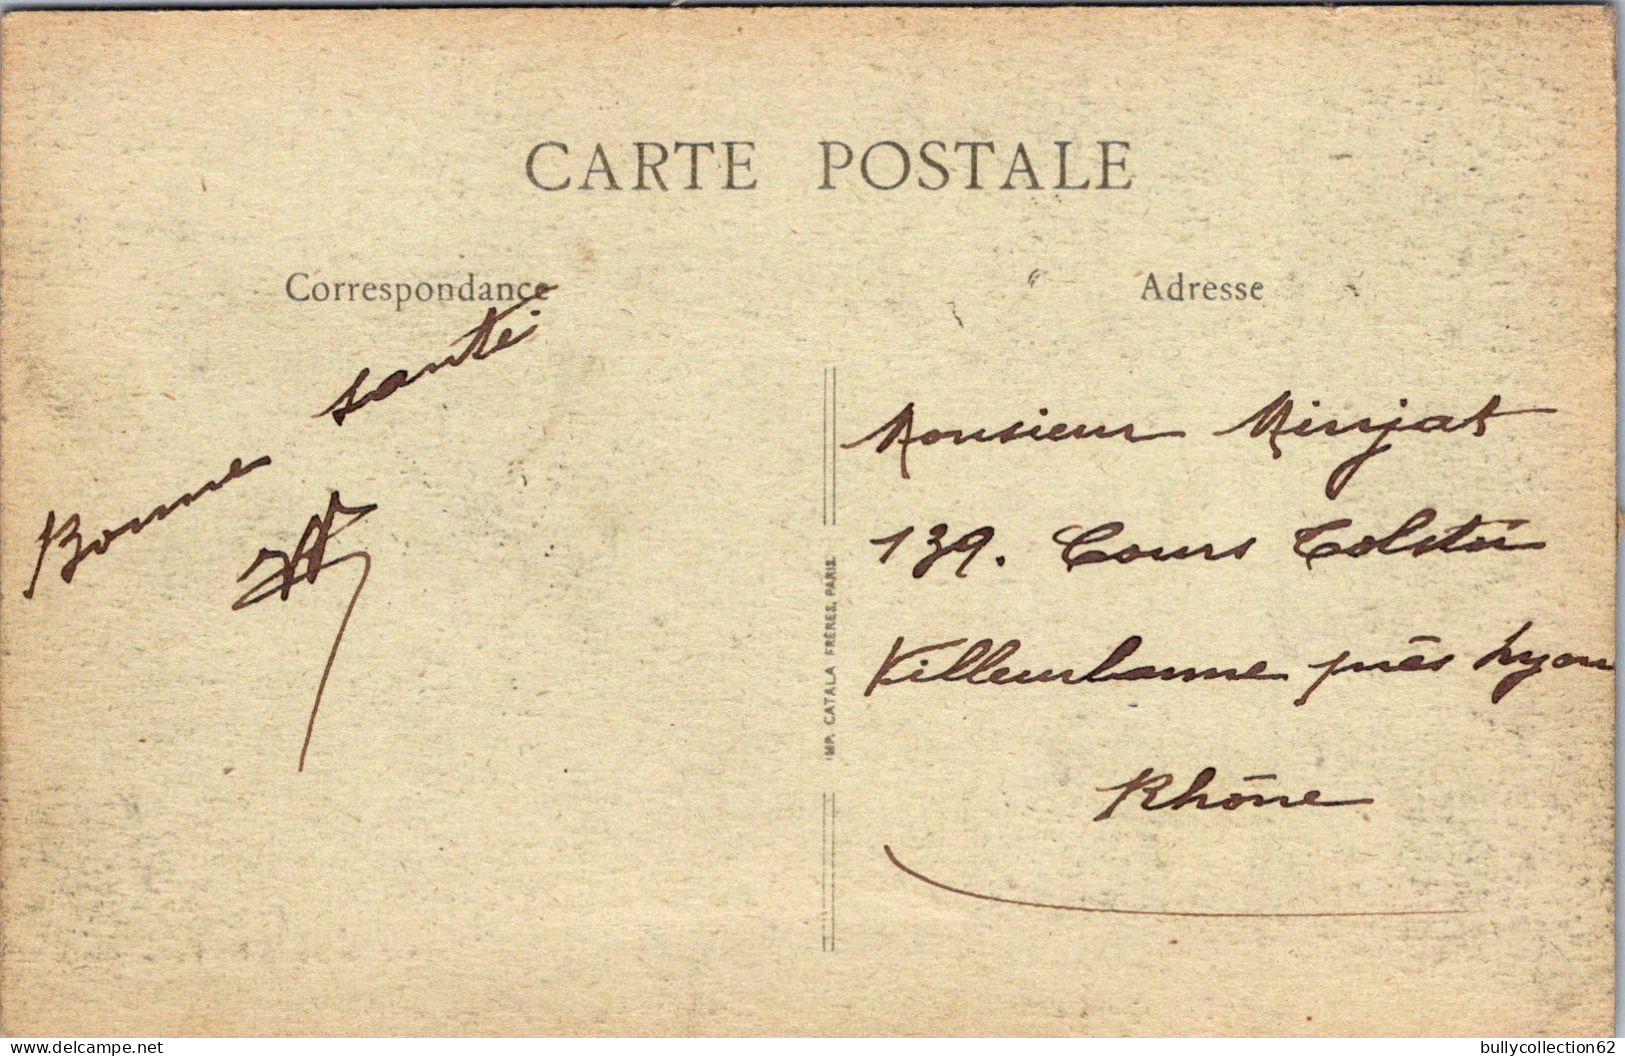 CARTE POSTALE
Correspondance
Adresse
Bonne santé
Monsieur Minjat
139. Cours Tolstoï
Villeurbanne près Lyon
Rhône
IMP. CATALA FRÈRES, PARIS.
delcampe.net
bullycollection62